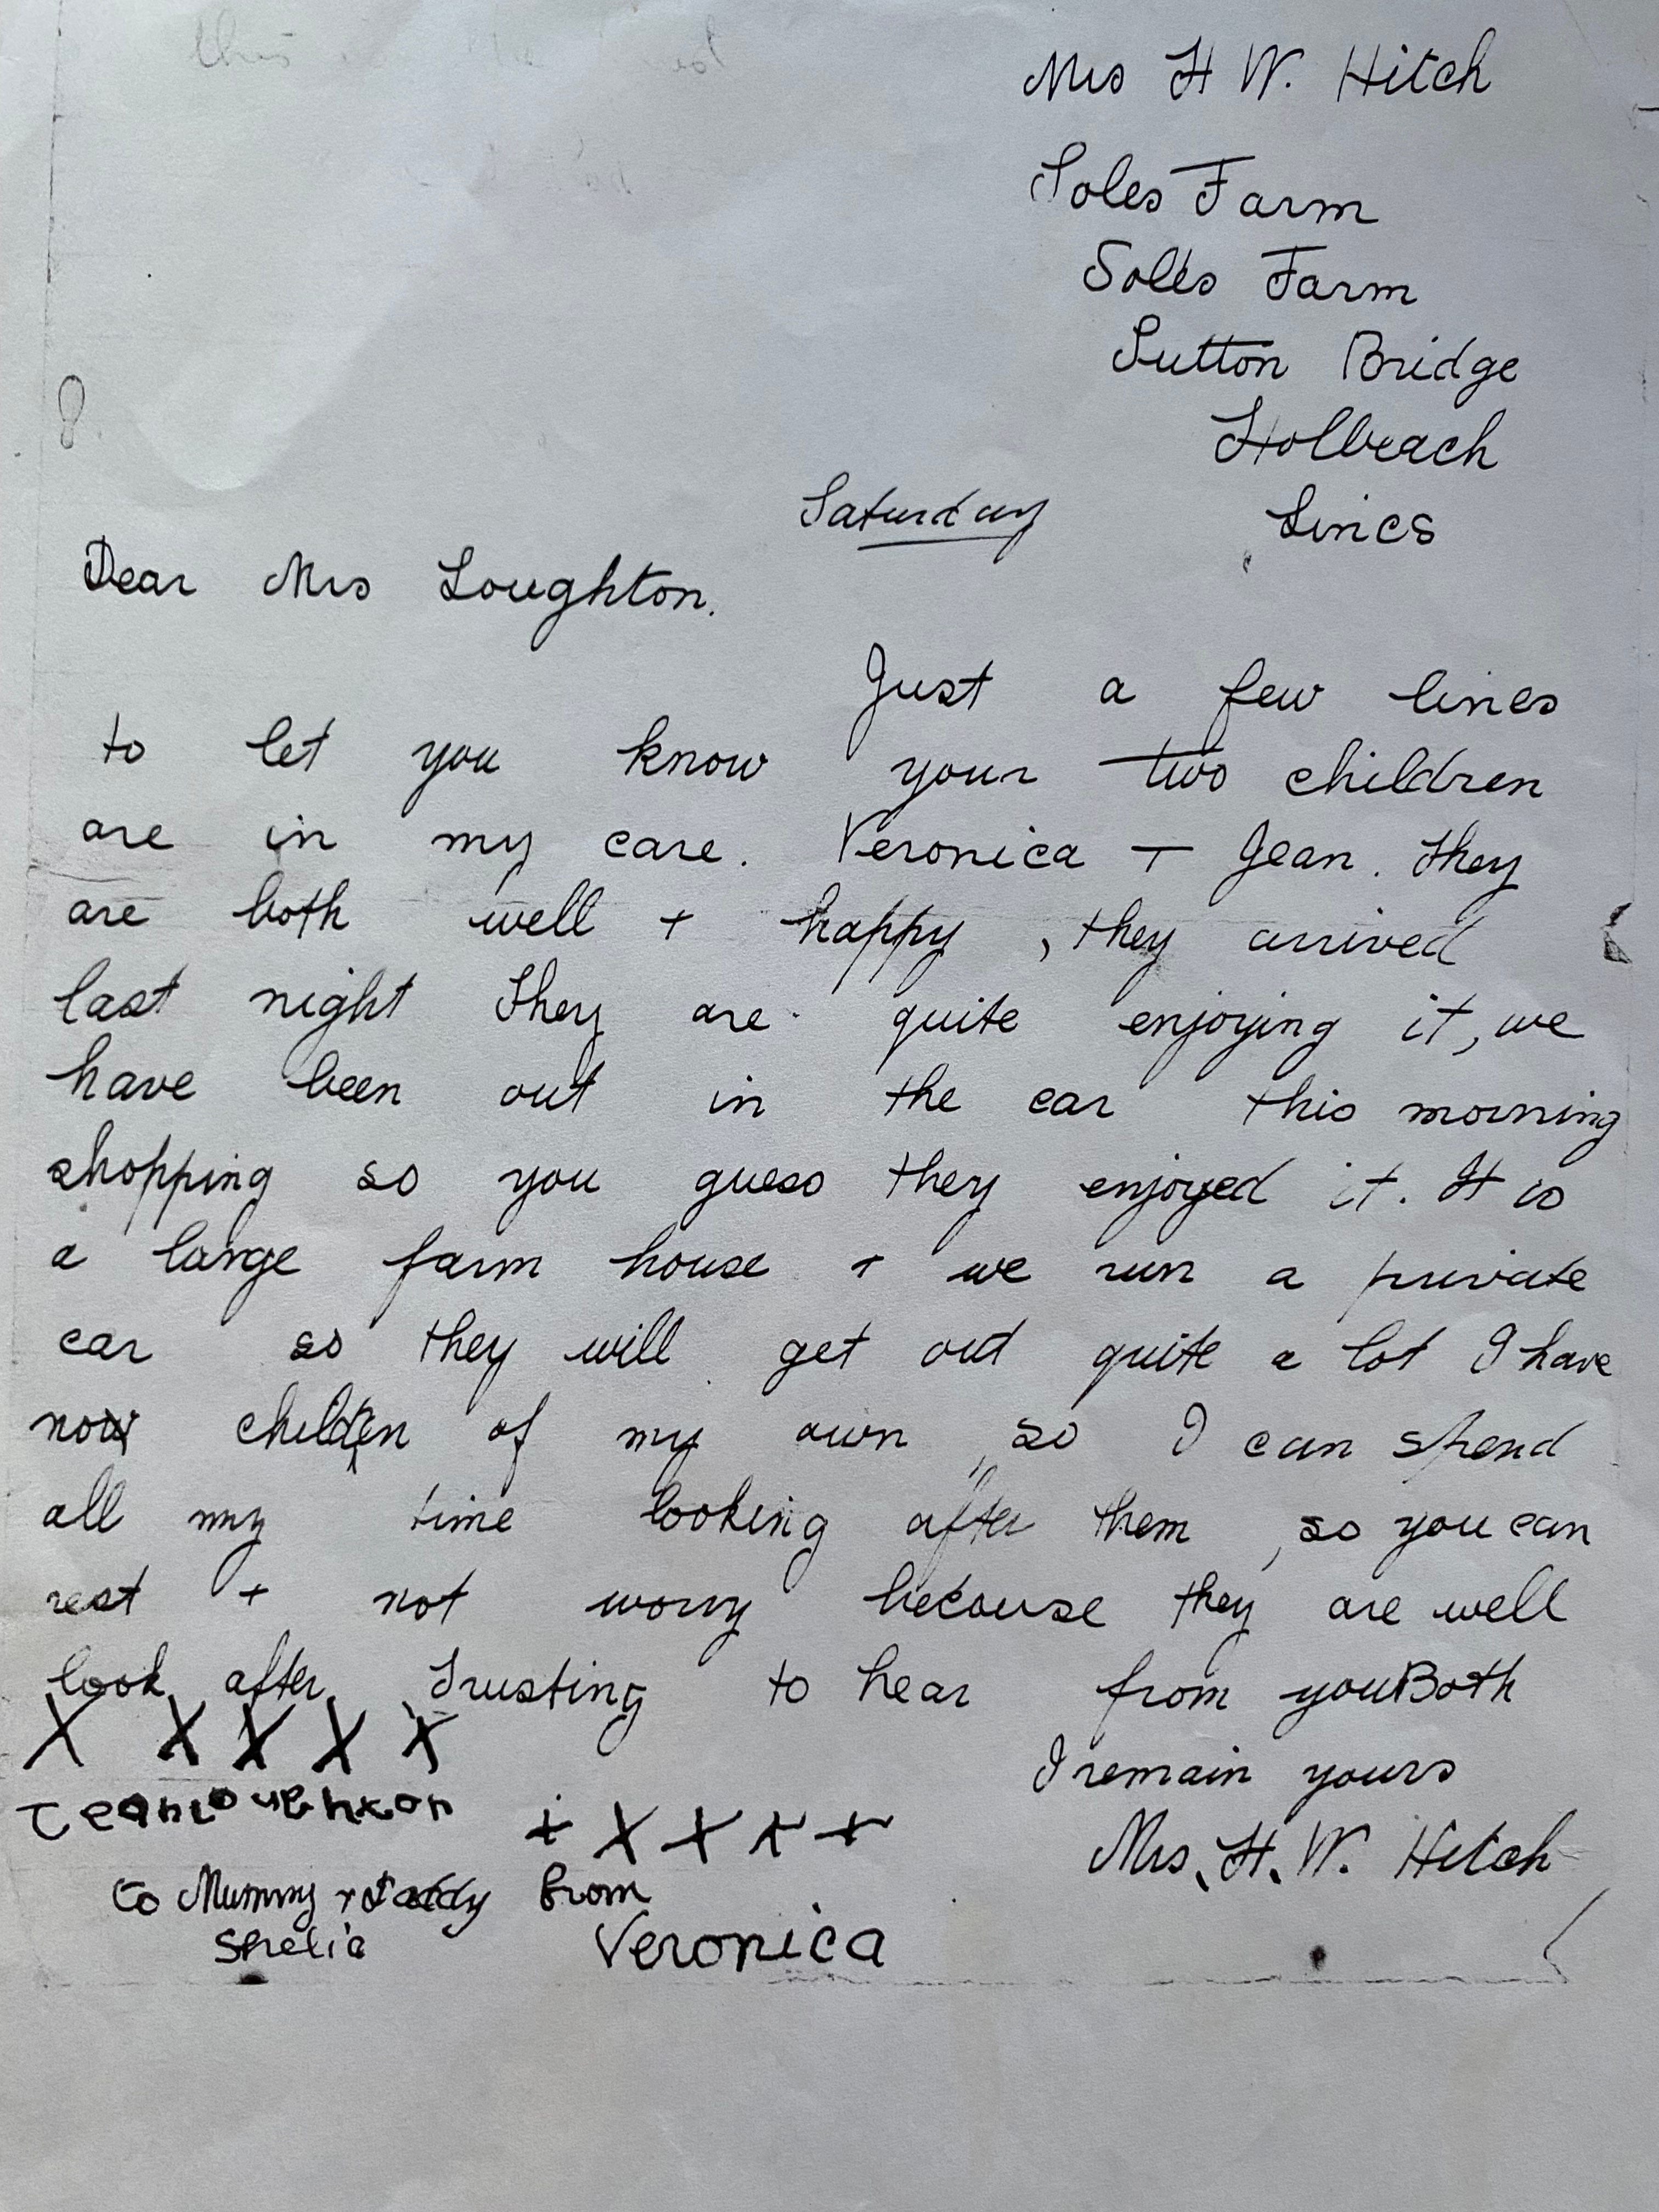 Mrs H W. Hitch
Soles Farm
Soles Farm
Sutton Bridge
Holbeach
Saturday Lincs
Dear Mrs Loughton.
Just a few lines
to let you know your two children
are in my care. Veronica + Jean. They
are both well + happy, they arrived
last night They are quite enjoying it, we
have been out in the car this morning
shopping so you guess they enjoyed it. It is
a large farm house + we run a private
car so they will get out quite a lot I have
now children of my own, so I can spend
all my time looking after them, so you can
rest + not worry because they are well
look after, Trusting to hear from you Both
X X X X X
I remain yours
Jean Loughton
+ X X X X
Mrs. H. W. Hitch
to Mummy + daddy from
Shelia Veronica